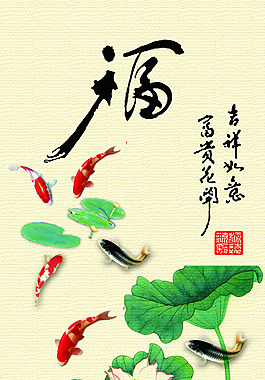 福
吉祥如意
富贵花開